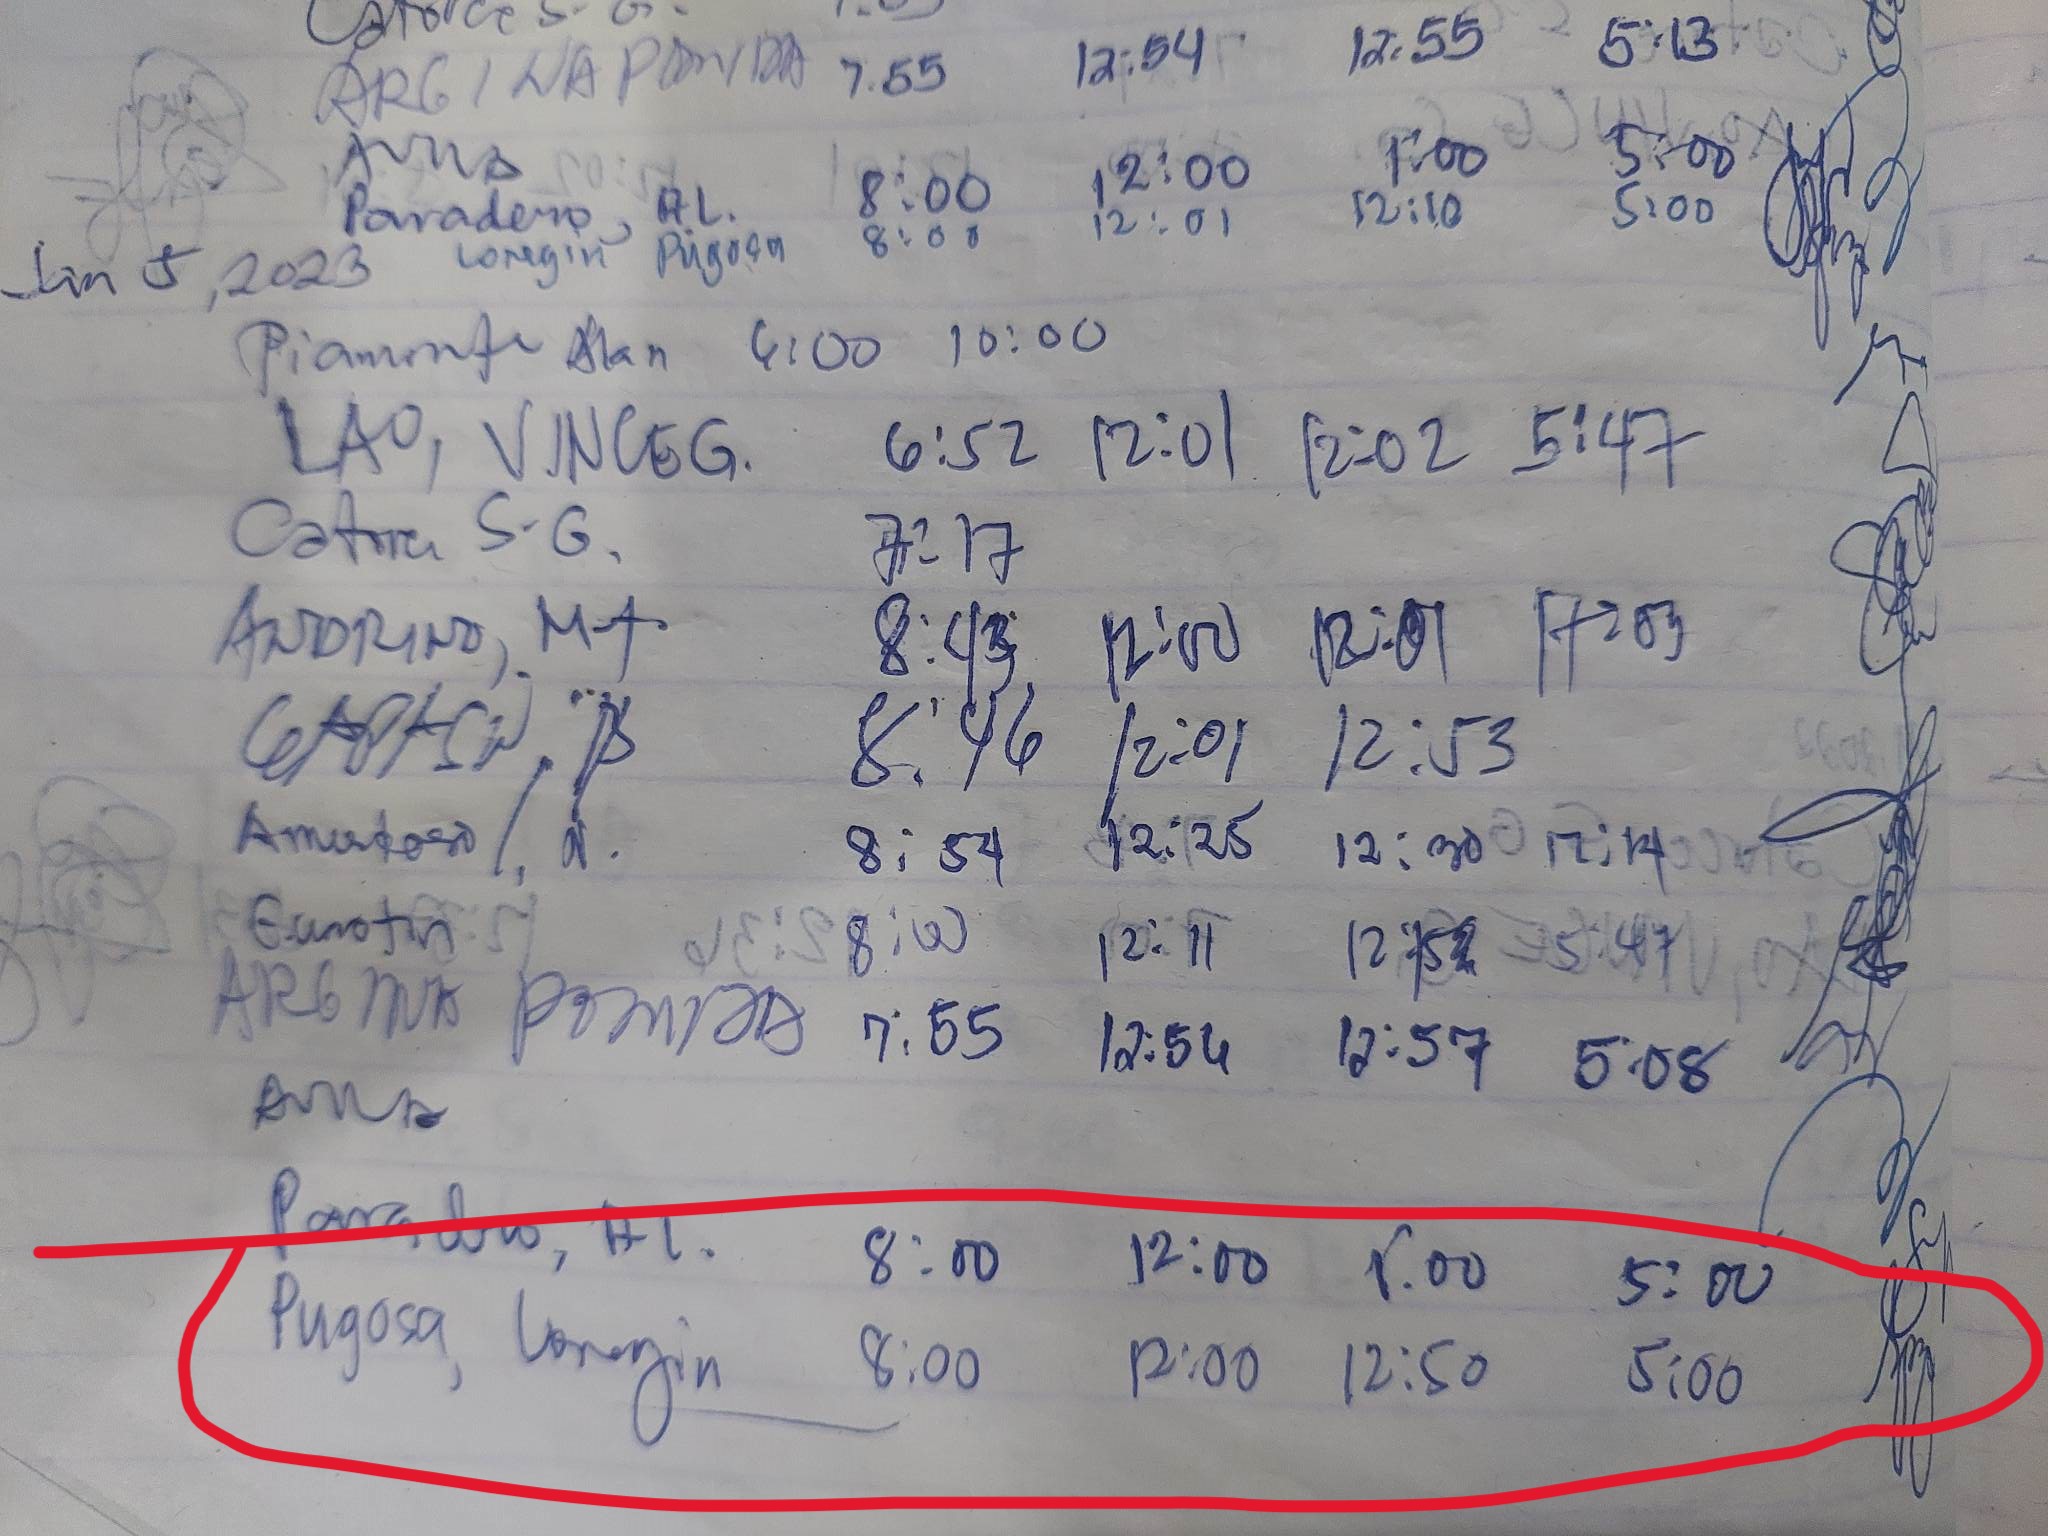 Catorce S. G. 7:05
ARGINA POMIDA 7:55 12:54 12:55 5:13
8:00 12:00 1:00 5:00
Paradero, AL. 12:01 12:10 5:00
Loregin Pugosa 8:00
Jun 5, 2023
Piamonte Alan 6:00 10:00
LAO, VINCE G. 6:52 12:01 12:02 5:47
Catorce S. G. 7:17
ANDRINO, M 8:43 12:00 12:01 17:03
8:46 12:01 12:53
8:54 12:25 12:30 17:14
8:00 12:11 12:52 5:47
ARGINA POMIDA 7:55 12:54 12:57 5:08
Paradero, AL. 8:00 12:00 1:00 5:00
Pugosa, Loregin 8:00 12:00 12:50 5:00